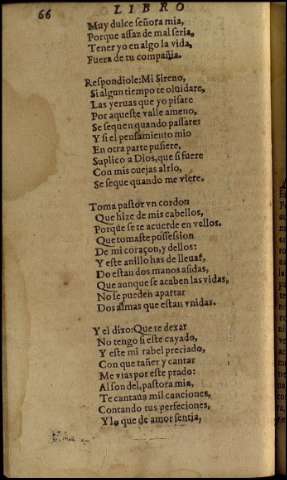 66
LIBRO
Muy dulce señora mia,
Porque assaz de mal seria,
Tener yo en algo la vida,
Fuera de tu compañia.
Respondiole: Mi Sireno,
Si algun tiempo te oluidare,
Las yeruas que yo pisare
Por aqueste valle ameno,
Se sequen quando passare:
Y si el pensamiento mio
En otra parte pusiere,
Suplico a Dios, que si fuere
Con mis ouejas al rio,
Se seque quando me viere.
Toma pastor vn cordon
Que hize de mis cabellos,
Porq̃ue se te acuerde en vellos.
Que tomaste possession
De mi coraçon, y dellos:
Y este anillo has de lleuar,
Do estan dos manos asidas,
Que aunque se acaben las vidas,
No se pueden apartar
Dos almas que estan vnidas.
Y el dixo: Que te dexar
No tengo si este cayado,
Y este mi rabel preciado,
Con que tañer y cantar
Me vias por este prado:
Al son del, pastora mia,
Te cantaua mil canciones,
Contando tus perfeciones,
Y lo que de amor sentia,